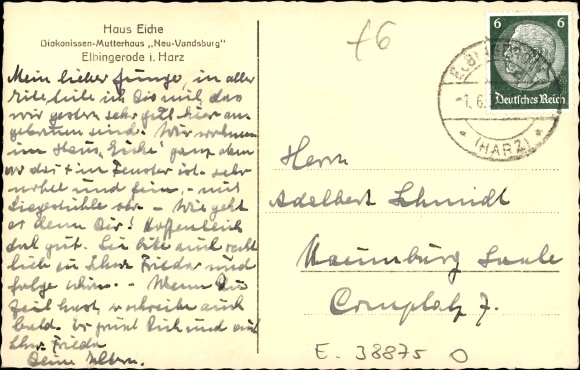 Haus Eiche
Diakonissen-Mutterhaus „Neu-Vandsburg"
Elbingerode i. Harz
Mein lieber Junge, in aller
Eile teile ich Dir mit, das
wir gestern sehr gut hier an
gekommen sind. Wir wohnen
im Haus „Eiche" ganz oben
wo das + im Fenster ist. sehr
nobel und fein, - mit
Liegestühle - Wie geht
es denn Dir! Hoffentlich
gut. Sei bitte auch recht
lieb zu Schw. Frieda und
folge schön. - Wenn Du
Zeit hast, schreibe auch
bald. Es grüßt Dich und auch
Schw. Frieda
Deine Eltern.
+6
6 6
Deutsches Reich
-1.6.
* (HARZ) *
Herrn
Adelbert Schmidt
Naumburg Saale
7.
E. 38875 O